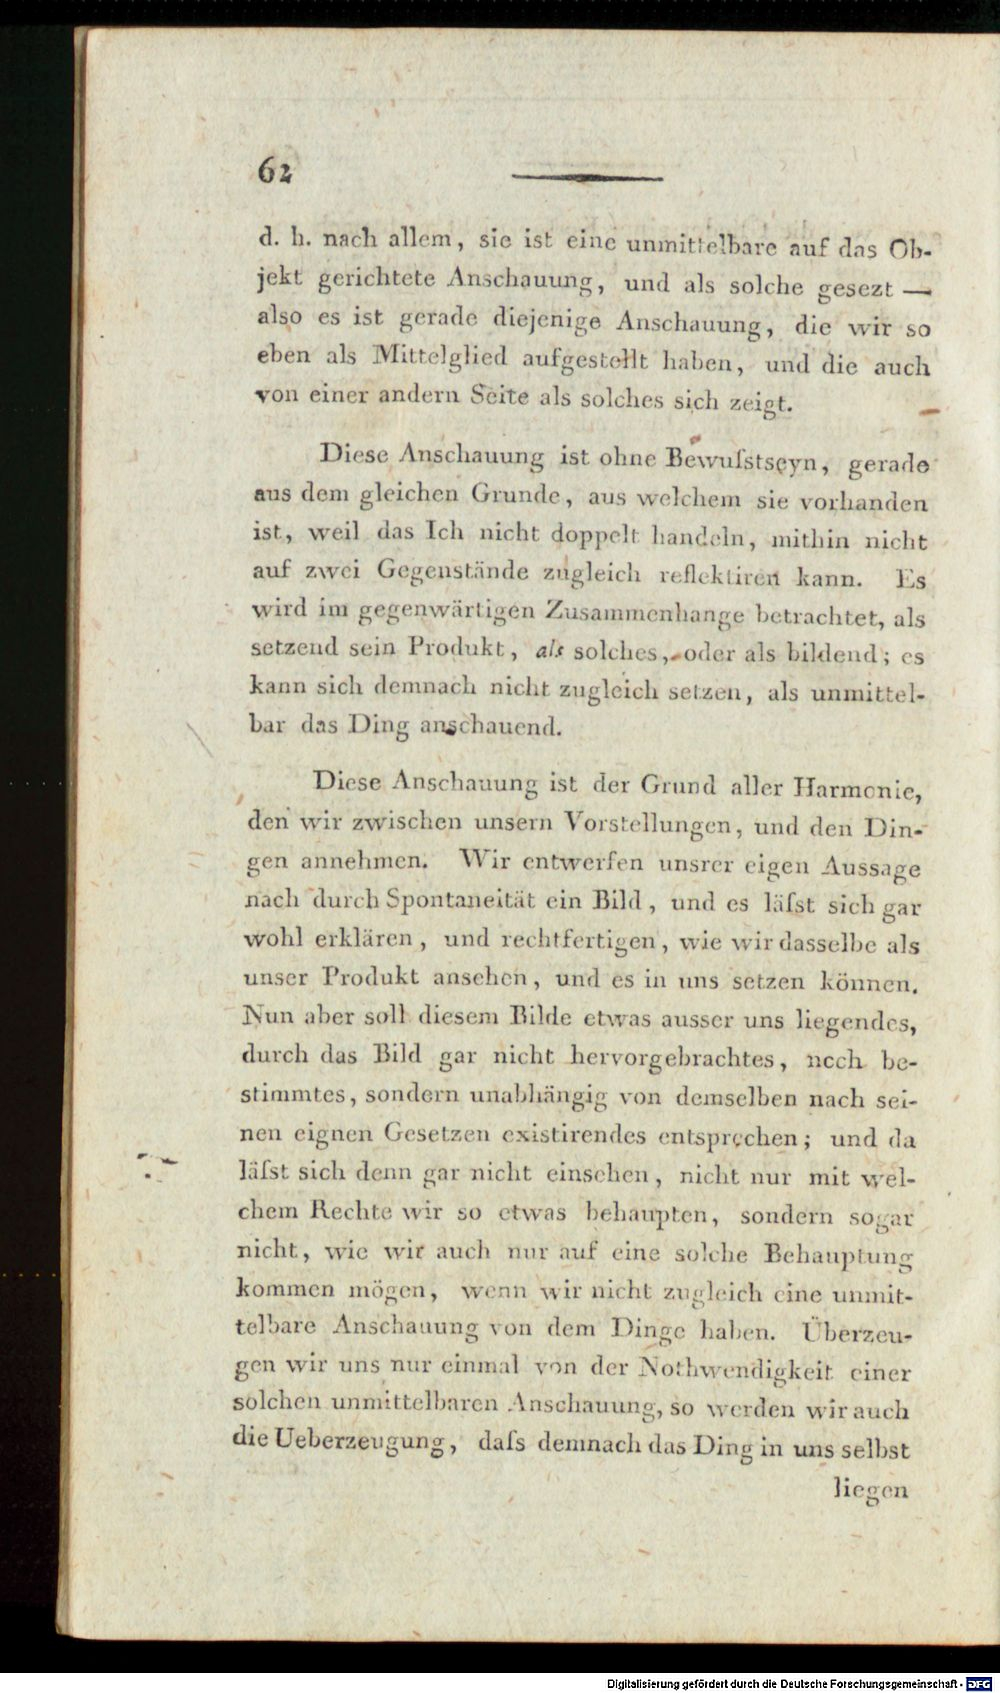 62
d. h. nach allem, sie ist eine unmittelbare auf das Ob-
jekt gerichtete Anschauung, und als solche gesezt —
also es ist gerade diejenige Anschauung, die wir so
eben als Mittelglied aufgestellt haben, und die auch
von einer andern Seite als solches sich zeigt.
Diese Anschauung ist ohne Bewuſstseyn, gerade
aus dem gleichen Grunde, aus welchem sie vorhanden
ist, weil das Ich nicht doppelt handeln, mithin nicht
auf zwei Gegenstände zugleich reflektiren kann. Es
wird im gegenwärtigen Zusammenhange betrachtet, als
setzend sein Produkt, als solches, oder als bildend; es
kann sich demnach nicht zugleich setzen, als unmittel-
bar das Ding anschauend.
Diese Anschauung ist der Grund aller Harmonie,
den wir zwischen unsern Vorstellungen, und den Din-
gen annehmen. Wir entwerfen unsrer eigen Aussage
nach durch Spontaneität ein Bild, und es läſst sich gar
wohl erklären, und rechtfertigen, wie wir dasselbe als
unser Produkt ansehen, und es in uns setzen können.
Nun aber soll diesem Bilde etwas ausser uns liegendes,
durch das Bild gar nicht hervorgebrachtes, noch be-
stimmtes, sondern unabhängig von demselben nach sei-
nen eignen Gesetzen existirendes entsprechen; und da
läſst sich denn gar nicht einsehen, nicht nur mit wel-
chem Rechte wir so etwas behaupten, sondern sogar
nicht, wie wir auch nur auf eine solche Behauptung
kommen mögen, wenn wir nicht zugleich eine unmit-
telbare Anschauung von dem Dinge haben. Überzeu-
gen wir uns nur einmal von der Nothwendigkeit einer
solchen unmittelbaren Anschauung, so werden wir auch
die Ueberzeugung, daſs demnach das Ding in uns selbst
liegen
Digitalisierung gefördert durch die Deutsche Forschungsgemeinschaft - DFG